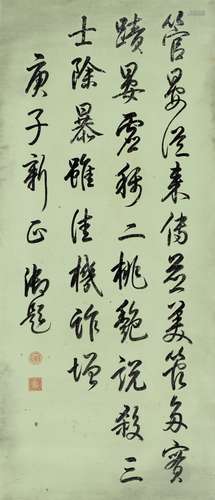 管晏從來傳並美管多實
蹟晏虛稱二桃艷說殺三
士除暴雖佳機詐增
庚子新正御題